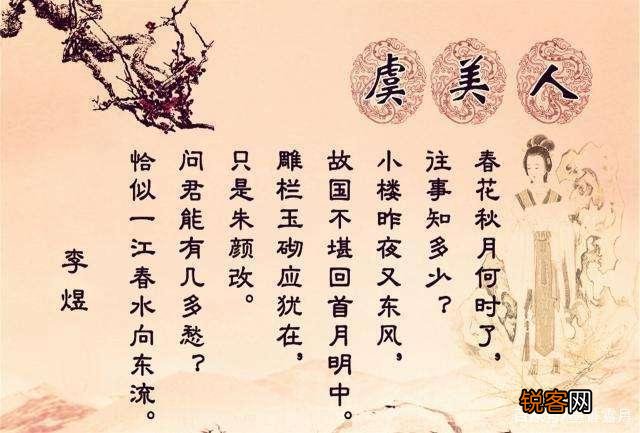 虞美人
春花秋月何时了，
往事知多少？
小楼昨夜又东风，
故国不堪回首月明中。
雕栏玉砌应犹在，
只是朱颜改。
问君能有几多愁？
恰似一江春水向东流。
李煜
锐客网